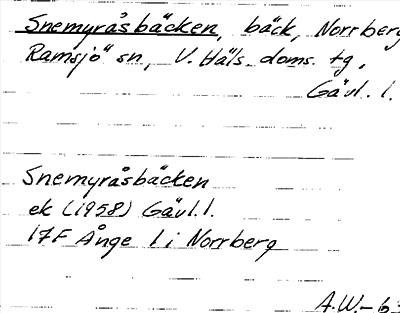 Snemyråsbäcken, bäck, Norrberg
Ramsjö sn, V. Häls. doms. tg,
Gävl. l.
Snemyråsbäcken
ek (1958) Gävl. l.
17F Ånge 1 i Norrberg
A.W. - 63